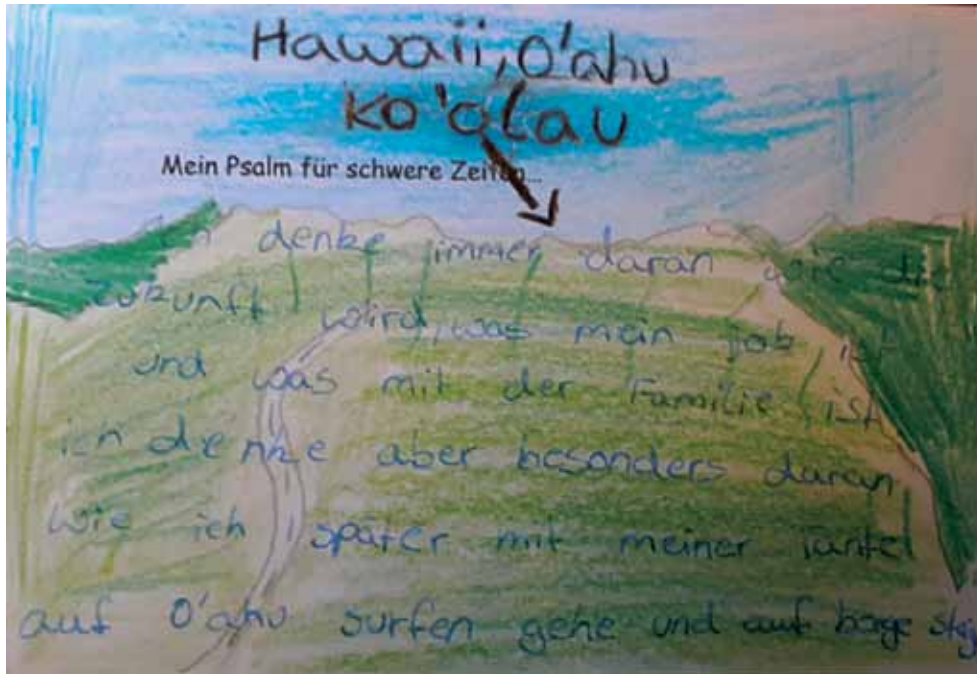 Hawaii, O'ahu
Ko'olau
Mein Psalm für schwere Zeiten...
Ich denke immer daran wie die
Zukunft wird, was mein job ist
und was mit der Familie ist
ich dienke aber besonders daran
wie ich später mit meiner Tante
auf O'ahu surfen gehe und auf berge steig